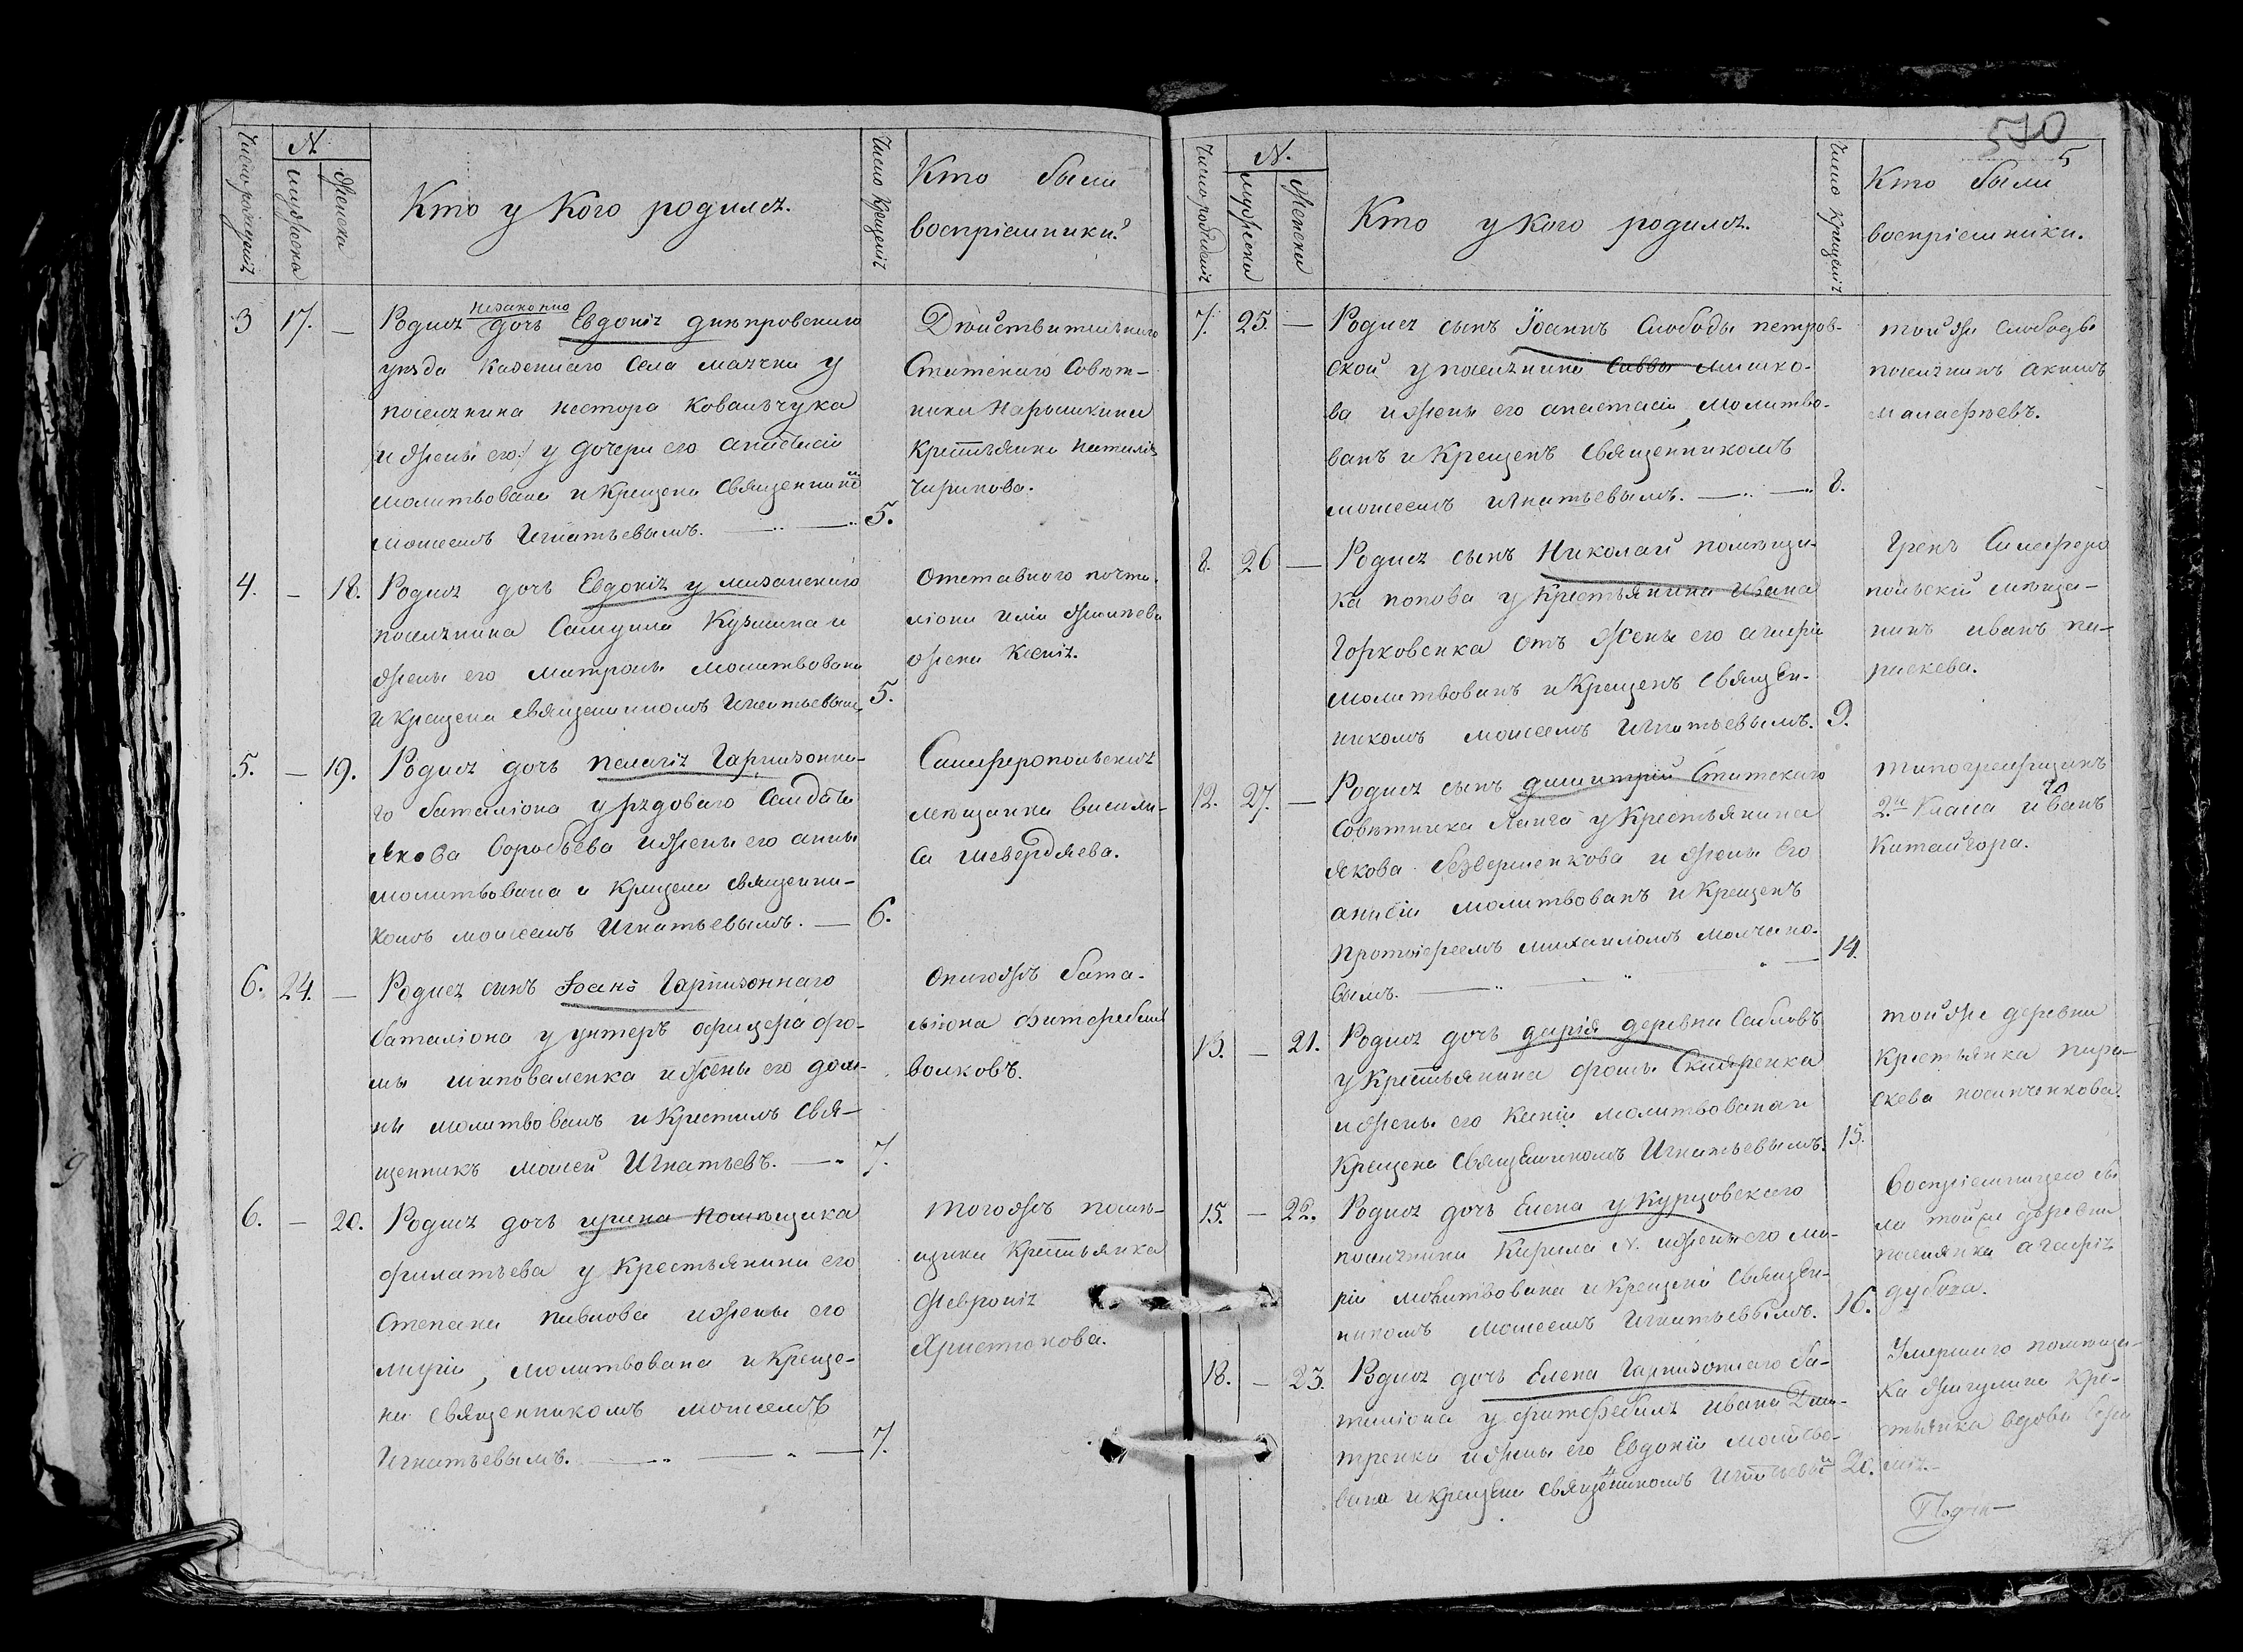 Число рожденія
N.
мужеска
женска
Кто у Кого родился.
Число крещенія
Кто были
воспріемники.
3
17.
—
незаконно
Родися дочь Евдокія днѣпровскаго
уѣзда Казеннаго Села маячки у
поселянина нестора Ковальчука
/и жены его/ у дочери его анастасіи
молитвована и Крещена Священнико
моисеемъ Игнатьевымъ.
5.
Дѣйствительнаго
Статскаго Совѣт-
ника Нарышкина
Крестьянка наталія
чирикова.
4.
—
18.
Родися дочь Евдокія у мазанскаго
поселянина Самуила Кузмина и
жены его матроны молитвована
и крещена священникомъ Игнатьевым
5.
отставного почта-
ліона жена Ксенія.
5.
—
19.
Родися дочь пелагія Гарнизонна-
го баталіона у рядоваго Солдата
Якова Воробьева и жены его анны
молитвована и Крещена священни-
комъ моисеемъ Игнатьевымъ.
6.
Симферопольская
мѣщанка васили-
са шевердяева.
6.
24.
—
Родися сынъ Іоанъ Гарнизоннаго
баталіона у унтеръ офицера фо-
мы шиповаленка и жены его дом-
ны молитвовалъ и Крестилъ Свя-
щенникъ моисей Игнатьевъ.
7.
онагожъ бата-
ліона фитфебель
волковъ.
6.
—
20.
Родися дочь ирина помѣщика
филатьева у Крестьянина его
Степана павлова и жены его
маріи, молитвована и Креще-
на священникомъ моисеемъ
Игнатьевымъ.
7.
тогожъ помѣ-
щика Крестьянка
Февронія
Христюкова.
570
5
Число рожденія
N.
мужеска
женска
Кто у Кого родился.
Число Крещенія
Кто были
воспріемники.
7.
25.
—
Родися сынъ Іоаннъ Слободы петров-
ской у поселянина Саввы мишко-
ва и жены его анастасіи, молитво-
ванъ и Крещенъ Священникомъ
моисеемъ Игнатьевымъ.
8.
той же слободы
поселянинъ акимъ
малафѣевъ.
8.
26
—
Родися сынъ Николай помѣщи-
ка попова у Крестьянина Ивана
Горковенка отъ жены его агафіи
молитвованъ и Крещенъ Священ-
никомъ моисеемъ Игнатьевымъ.
9.
Грекъ Симферо
польскій мѣща-
нинъ иванъ па-
раскева.
12.
27.
—
Родися сынъ димитрій Статскаго
Совѣтника Ланга у Крестьянина
Якова безвершенкова и жены Его
анастасіи молитвованъ и Крещенъ
Протоіереемъ михаиломъ молчано-
вымъ.
14.
типографщикъ
2го Класа иванъ
Китайгора.
13.
—
21.
Родися дочь дарія деревни Сабловъ
у Крестьянина фомы Скляренка
и жены его Ксеніи молитвована и
Крещена Священникомъ Игнатьевымъ.
15.
той же деревни
крестьянка пара-
скева
15.
—
22.
Родися дочь Елена у Курцовскаго
поселянина Кирила N. и жены его ма-
ріи молитвована и Крещена Священ-
никомъ моисеемъ Игнатьевымъ.
16.
Воспріемницею бы
ла той же деревни
поселянка агафія
18.
—
23.
Родися дочь Елена Гарнизоннаго ба-
таліона у фитфебиля ивана Дми-
тренка и жены его Евдокіи молитво-
вана и крещена священникомъ Игнатьевы
20.
Умершаго помѣщи-
ка Крe-
стьянка вдова